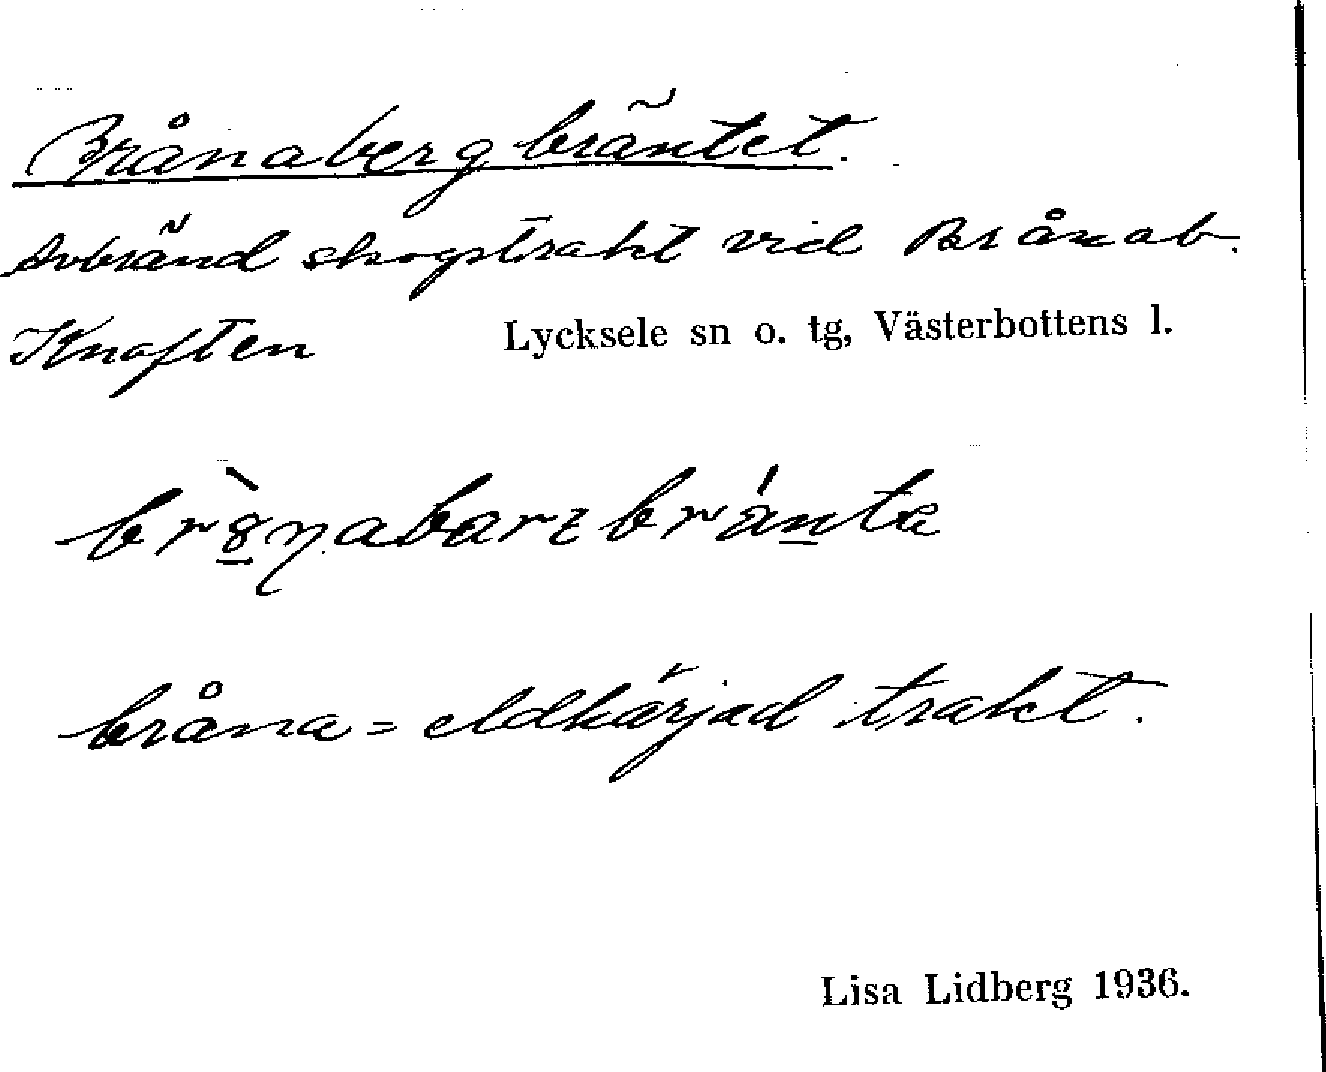 Brånabergbräntet.
Avbränd skogstrakt vid Brånab.
Knaften Lycksele sn o. tg, Västerbottens l.
bråna = eldhärjad trakt.
Lisa Lidberg 1936.